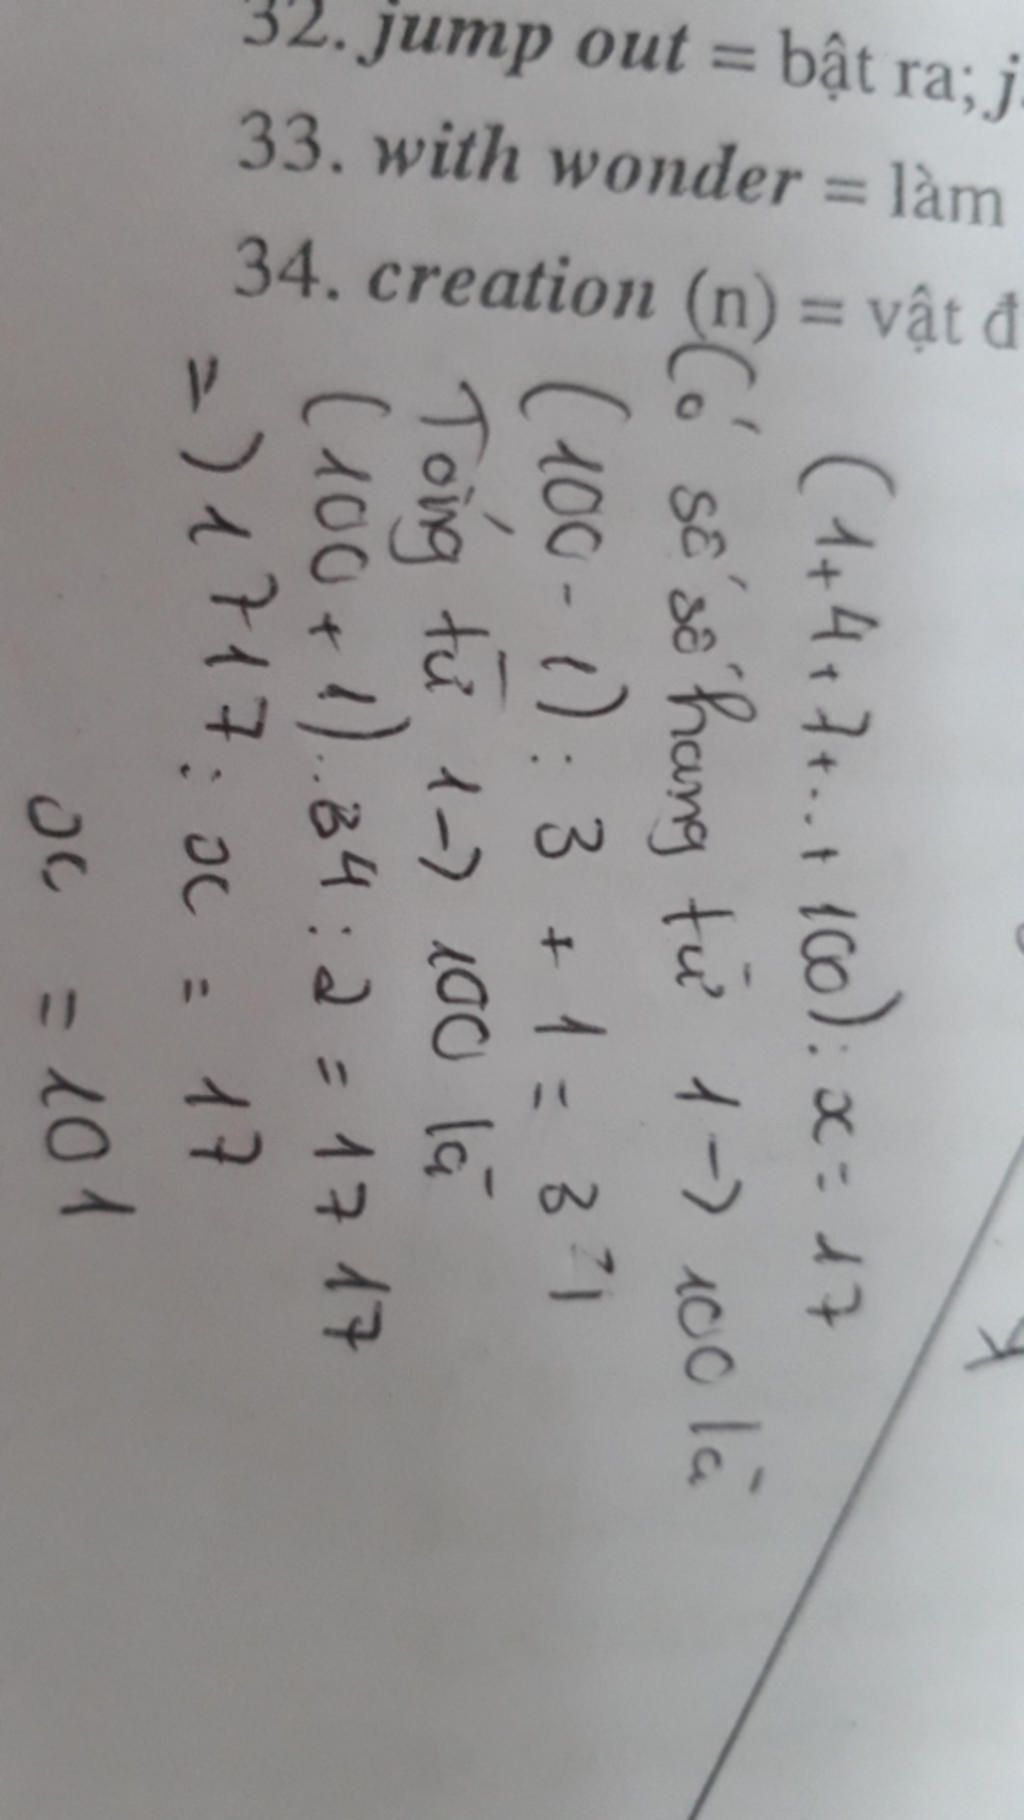 32. jump out = bật ra; j
33. with wonder = làm
34. creation (n) = vật đ
(1+4+7+...+100) : x = 17
Có số số hang từ 1 -> 100 là
(100 - 1) : 3 + 1 = 34
Tổng từ 1 -> 100 là
(100 + 1) . 34 : 2 = 1717
=) 1717 : x = 17
x = 101